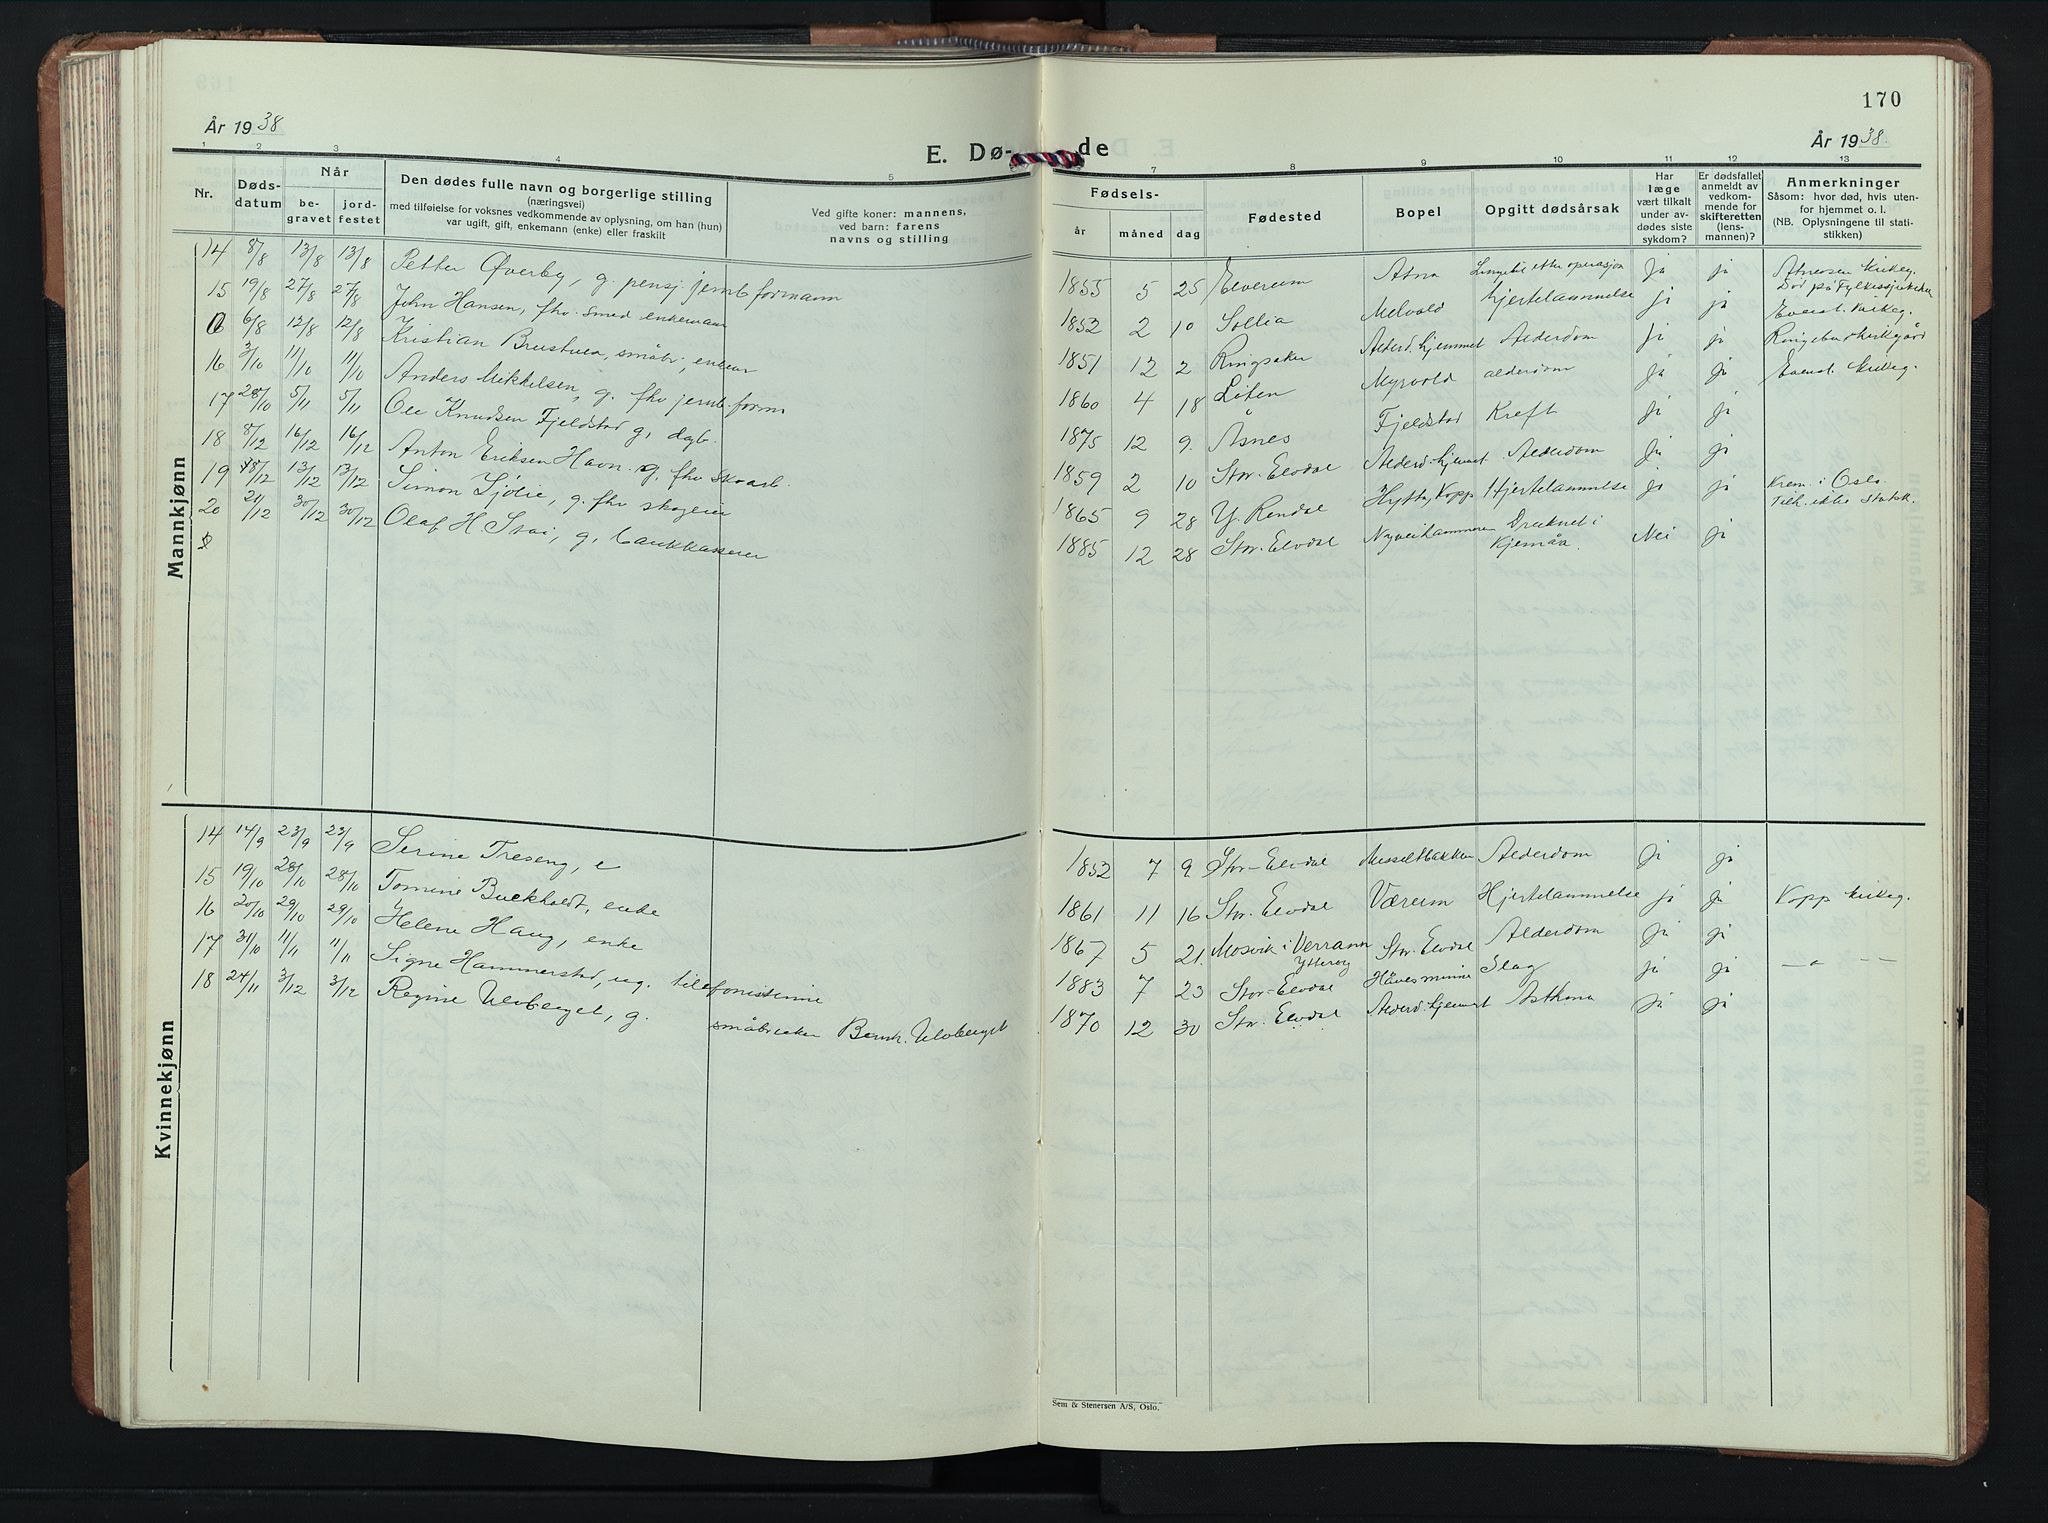 170
År 1938
År 1938.
E. Dø-de
1 2 3 4 5 7 8 9 10 11 12 13
Nr.
Døds-
datum
Når
be-
gravet
jord-
festet
Den dødes fulle navn og borgerlige stilling
(næringsvei)
med tilføielse for voksnes vedkommende av oplysning, om han (hun)
var ugift, gift, enkemann (enke) eller fraskilt
Ved gifte koner: mannens,
ved barn: farens
navns og stilling
Fødsels-
år
måned
dag
Fødested
Bopel
Opgitt dødsårsak
Har
læge
vært tilkalt
under av-
dødes siste
sykdom?
Er dødsfallet
anmeldt av
vedkom-
mende for
skifteretten
(lens-
mannen)?
Anmerkninger
Såsom: hvor død, hvis uten-
for hjemmet o. l.
(NB. Oplysningene til stati-
stikken)
Mannkjønn
14 8/8 13/8 13/8 Petter Øverby, g. pensj. jernb.formann 1855 5 25 Elverum Atna efter operasjon ja ja Atneosen kirkeg. Død på Fylkessjukehus
15 19/8 27/8 27/8 John Hansen, fhv. smed enkemann 1852 2 10 Sollia Melvold Hjertelammelse ja ja Evenst. kirkeg.
6/8 12/8 12/8 Kristian Brustuen, småbr., enkem 1851 12 2 Ringsaker Alderd.hjemmet Alderdom ja ja Ringebu kirkegård
16 3/10 11/10 11/10 Anders Mikkelsen, g. fhv jernb.form 1860 4 18 Løten Myrvold alderdom ja ja Evenst. kirkeg.
17 28/10 5/11 5/11 Ole Knudsen Fjeldstad g, dagb. 1875 12 9. Åsnes Fjeldstad Kreft ja ja
18 8/12 16/12 16/12 Anton Eriksen Havn g, fhv skoarb. 1859 2 10 Stor-Elvdal Alderd.hjemmet Alderdom ja ja
19 8/12 13/12 13/12 Simon Sjølie, g. fhv skogeier 1865 9 28 Y. Rendal Hytta, Kopp Hjertelammelse ja ja Krem. i Oslo Tilh. ikke statsk.
20 21/12 30/12 30/12 Olaf H. Stai, g, bankkasserer 1885 12 28 Stor-Elvdal Druknet i Kjemåa. Nei ja
Kvinnekjønn
14 14/9 23/9 23/9 Serine Treseng, e 1852 7 9 Stor-Elvdal Messeltbakken Alderdom ja ja
15 19/10 28/10 28/10 Tomine Buckholdt, enke 1861 11 16 Stor-Elvdal Værum Hjertelammelse ja ja Kopp kirkeg.
16 20/10 29/10 29/10 Helene Haug, enke 1867 5 21. Mosvik i Verrann Ytterøy Stor-Elvdal Alderdom ja ja
17 31/10 11/11 11/11 Signe Hammerstad, ug. telefonistinne 1883 7 23 Stor-Elvdal Slag ja ja —"—
18 24/11 3/12 3/12 Regine Ulvberget, g. småbruker Bernh. Ulvberget 1870 12 30 Stor-Elvdal Alderd.hjemmet Asthma ja ja
Sem & Stenersen A/S, Oslo.